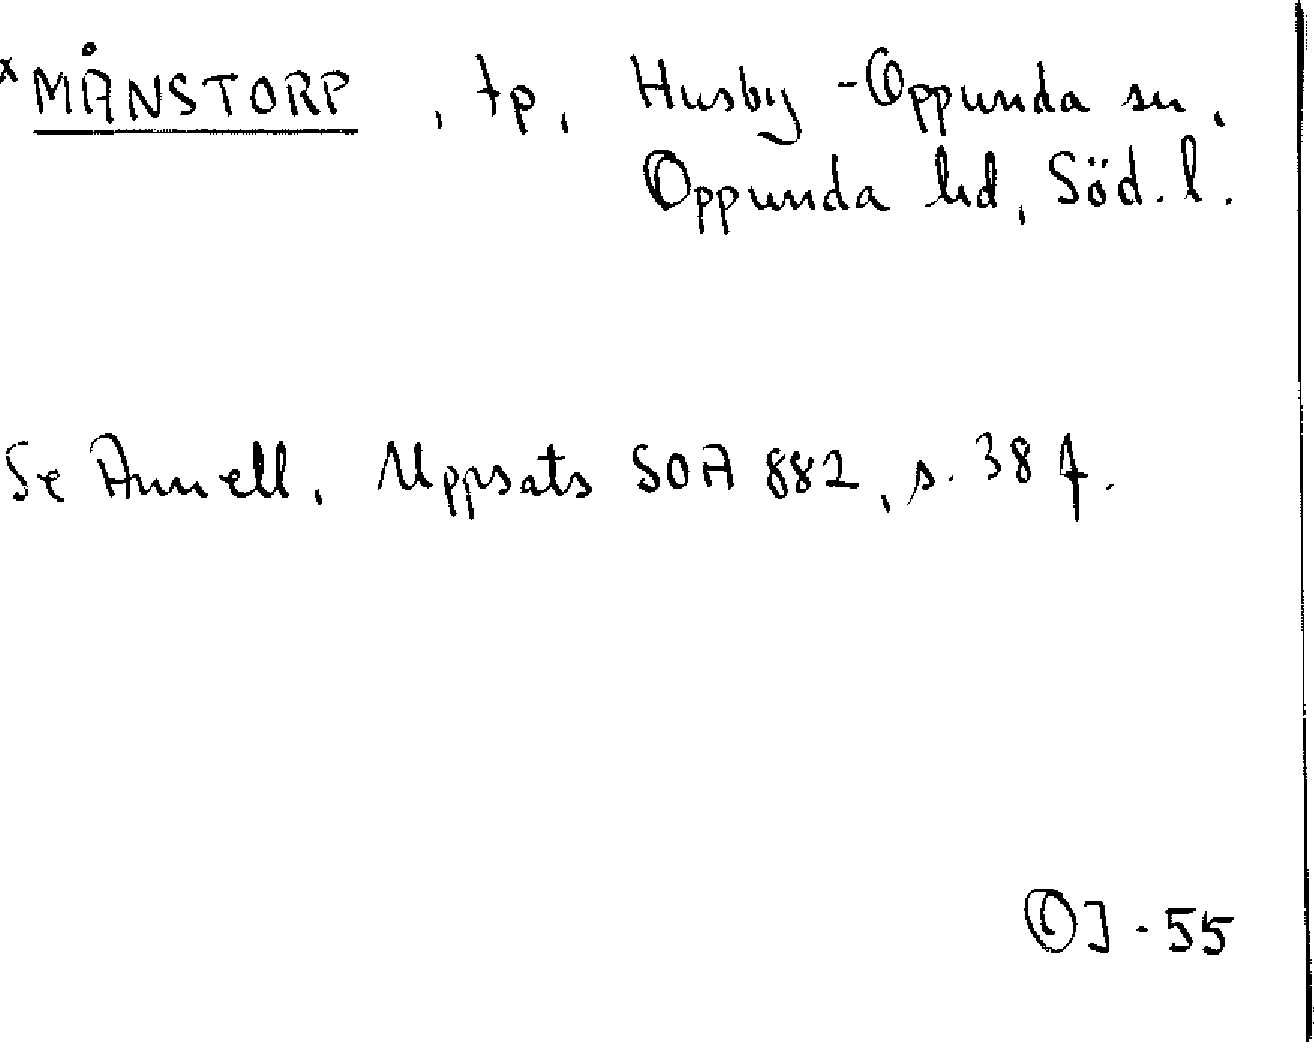 x MÅNSTORP, tp, Husby-Oppunda sn,
Oppunda hd, Söd. l.
Se Annell, Uppsats SOA 882, s. 38 f.
OJ-55